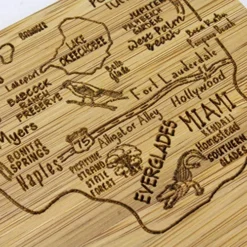 JUPITER
WHEELS
West Palm
Beach
LAKE
OKEECHOBEE
Boca Raton
Pompano Beach
Lakeport
Belle
Glade
BABCOCK
RANCH
PRESERVE
Fort Lauderdale
Hollywood
Myers
Alligator Alley
75
MIAMI
BONITA
SPRINGS
Naples
PICAYUNE
STRAND
STATE
FOREST
EVERGLADES
KENDALL
Homestead
SOUTHERN
GLADES